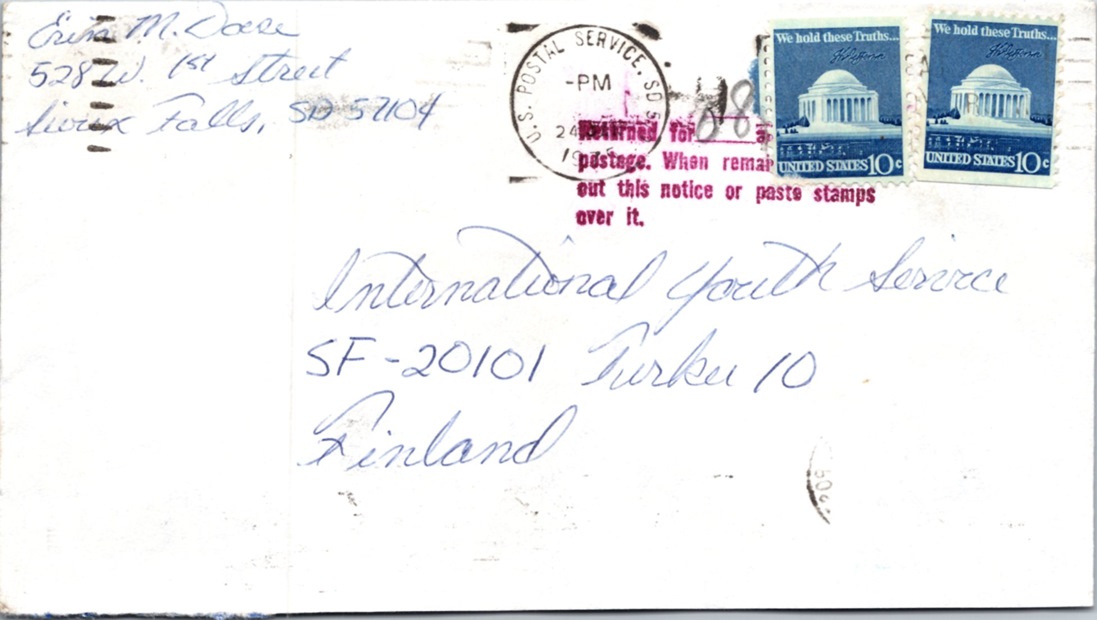 Erin M.
528 W. 1st Street
Sioux Falls, SD 57104
U.S. POSTAL SERVICE, SD
-PM
24
Returned for
postage. When
out this notice or paste stamps
over it.
We hold these Truths...
UNITED STATES 10c
We hold these Truths...
UNITED STATES 10c
International Youth Service
SF-20101 Turku 10
Finland